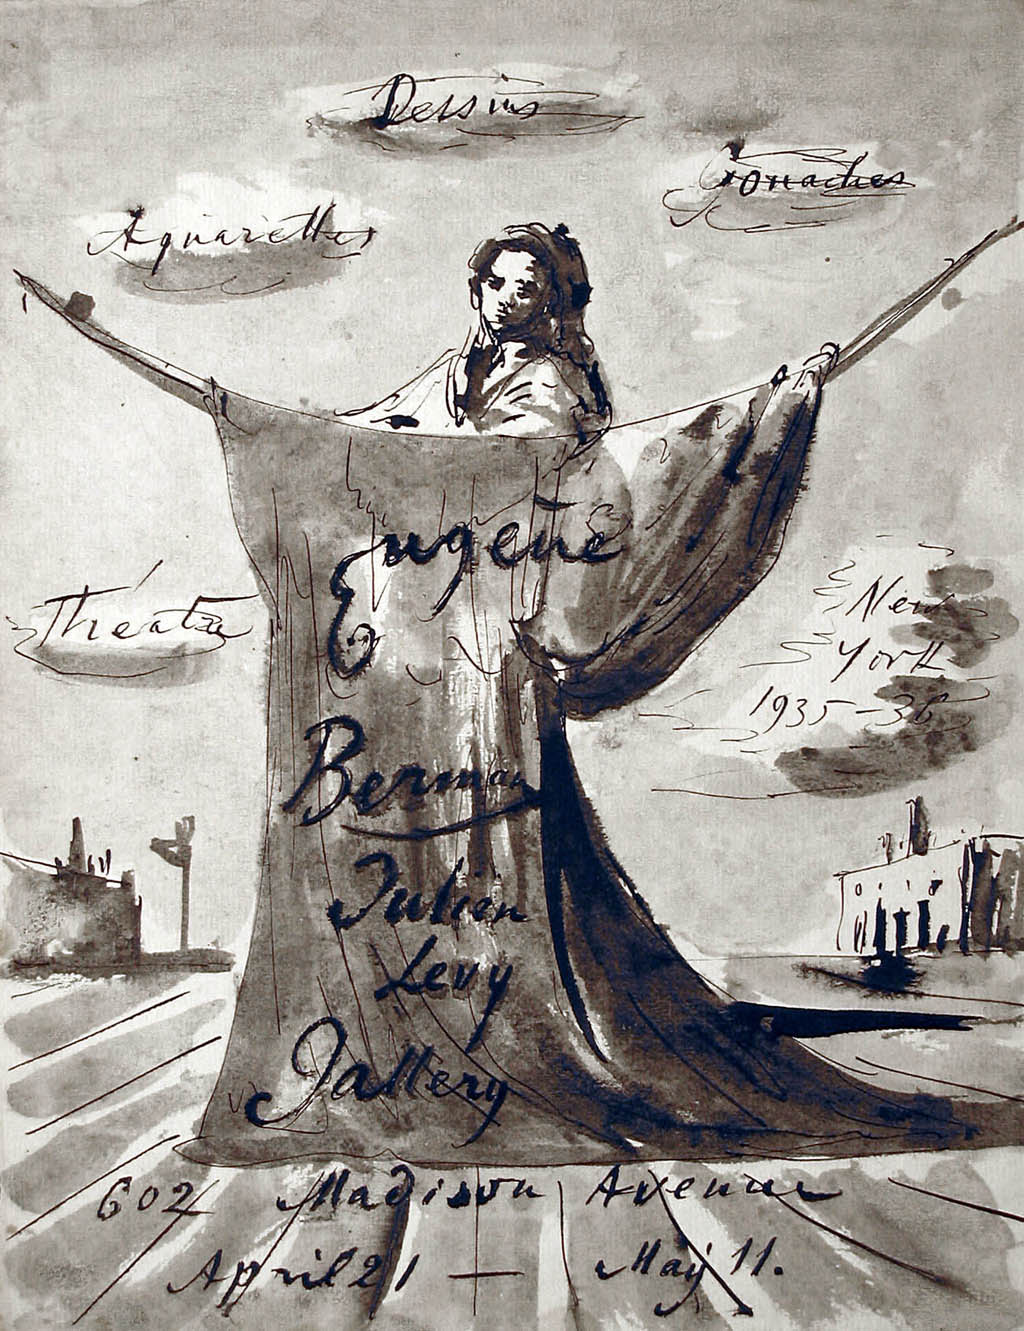 Dessins
Gouaches
Aquarelles
Théatre
New
York
1935-36
Eugene
Berman
Julien
Levy
Gallery
602 Madison Avenue
April 21 — May 11.